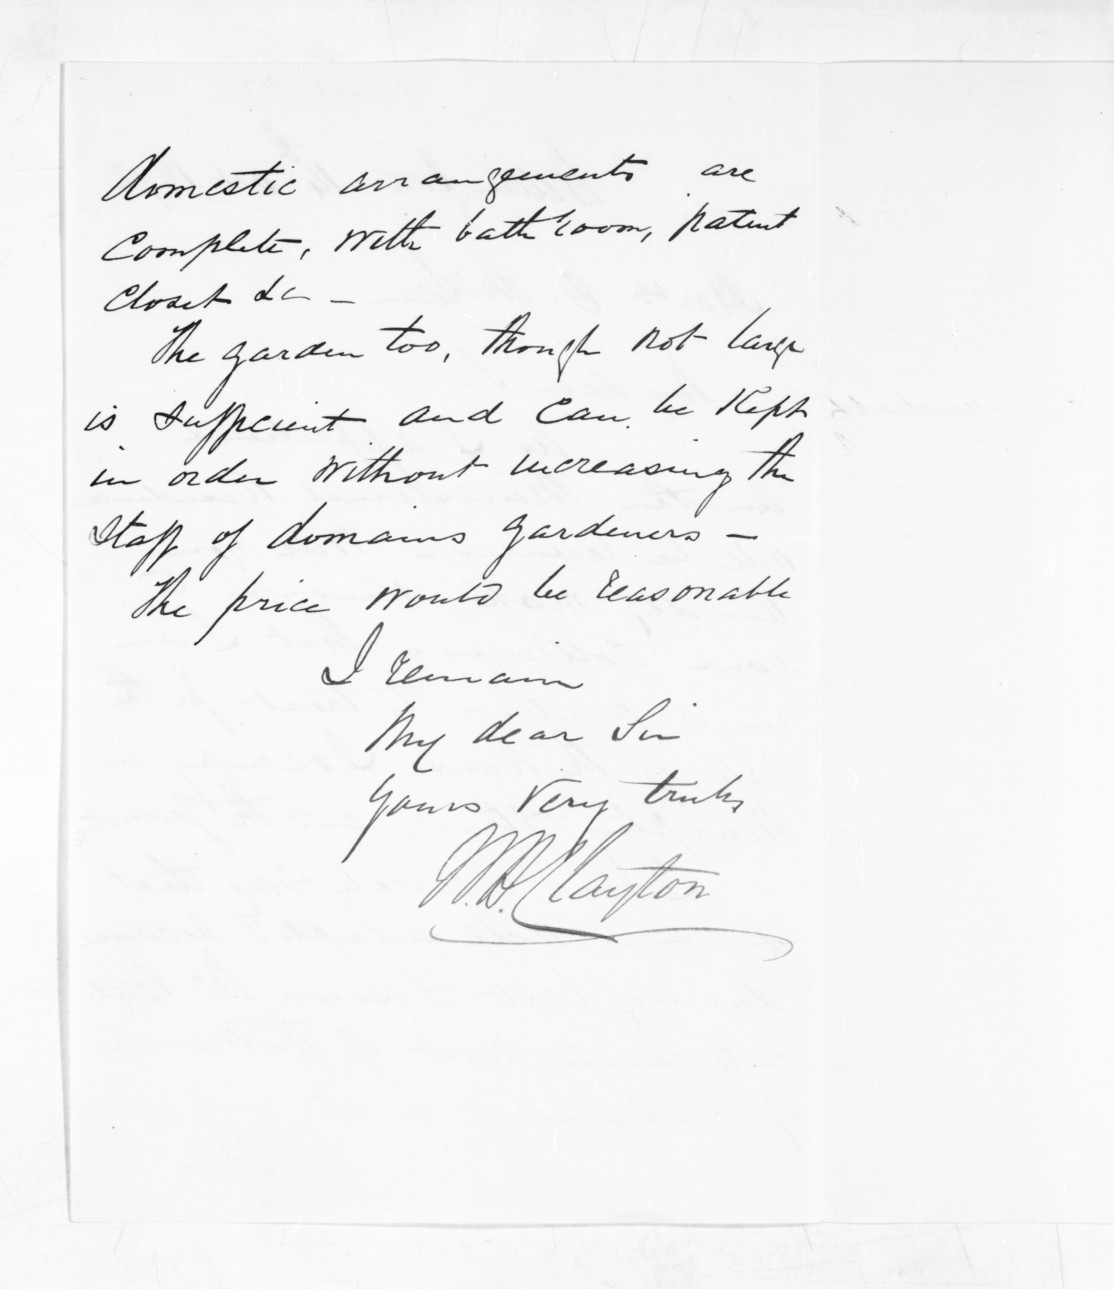 domestic arrangements are
complete, with bath room, patent
closet &c –
The garden too, though not large
is sufficient and can be kept
in order without increasing the
staff of domains gardeners –
The price would be reasonable
I remain
My dear Sir
Yours very truly
W.H. Clayton